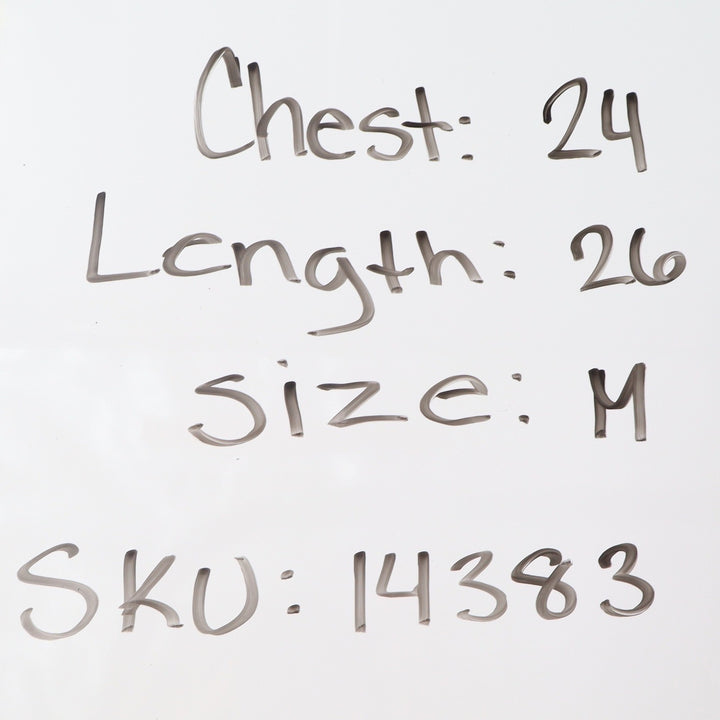 Chest: 24
Length: 26
Size: M
SKU: 14383